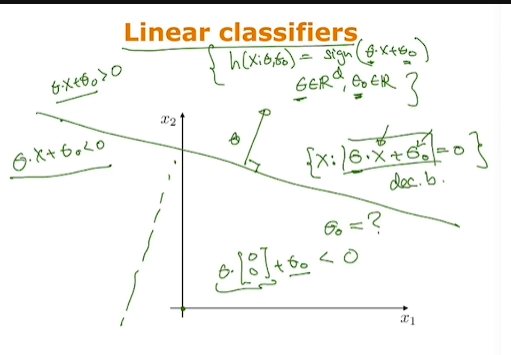 Linear classifiers
{ h(x;θ,θ₀) = sign(θ·x+θ₀)
θ∈ℝᵈ, θ₀∈ℝ }
θ·x+θ₀>0
x₂
θ
θ·x+θ₀<0
{x: θ·x+θ₀=0}
dec. b.
θ₀=?
θ·[0 0]+θ₀ < 0
x₁